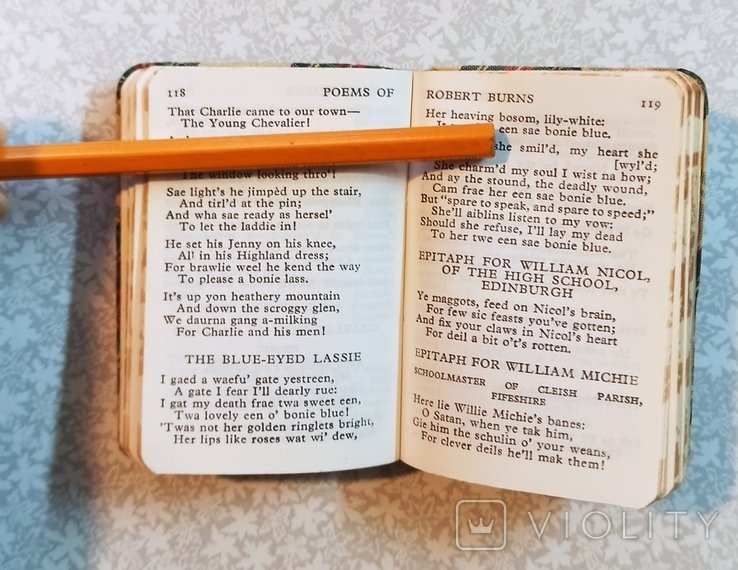 118 POEMS OF
That Charlie came to our town—
The Young Chevalier!
The window looking thro'!
Sae light's he jimpèd up the stair,
And tirl'd at the pin;
And wha sae ready as hersel'
To let the laddie in!
He set his Jenny on his knee,
All in his Highland dress;
For brawlie weel he kend the way
To please a bonie lass.
It's up yon heathery mountain
And down the scroggy glen,
We daurna gang a-milking
For Charlie and his men!
THE BLUE-EYED LASSIE
I gaed a waefu' gate yestreen,
A gate I fear I'll dearly rue:
I gat my death frae twa sweet een,
Twa lovely een o' bonie blue!
'Twas not her golden ringlets bright,
Her lips like roses wat wi' dew,
ROBERT BURNS 119
Her heaving bosom, lily-white:
een sae bonie blue.
she smil'd, my heart she
[wyl'd;
She charm'd my soul I wist na how;
And ay the stound, the deadly wound,
Cam frae her een sae bonie blue.
But "spare to speak, and spare to speed;"
She'll aiblins listen to my vow:
Should she refuse, I'll lay my dead
To her twe een sae bonie blue.
EPITAPH FOR WILLIAM NICOL,
OF THE HIGH SCHOOL,
EDINBURGH
Ye maggots, feed on Nicol's brain,
For few sic feasts you've gotten;
And fix your claws in Nicol's heart
For deil a bit o't's rotten.
EPITAPH FOR WILLIAM MICHIE
SCHOOLMASTER OF CLEISH PARISH,
FIFESHIRE
Here lie Willie Michie's banes:
O Satan, when ye tak him,
Gie him the schulin o' your weans,
For clever deils he'll mak them!
VIOLITY